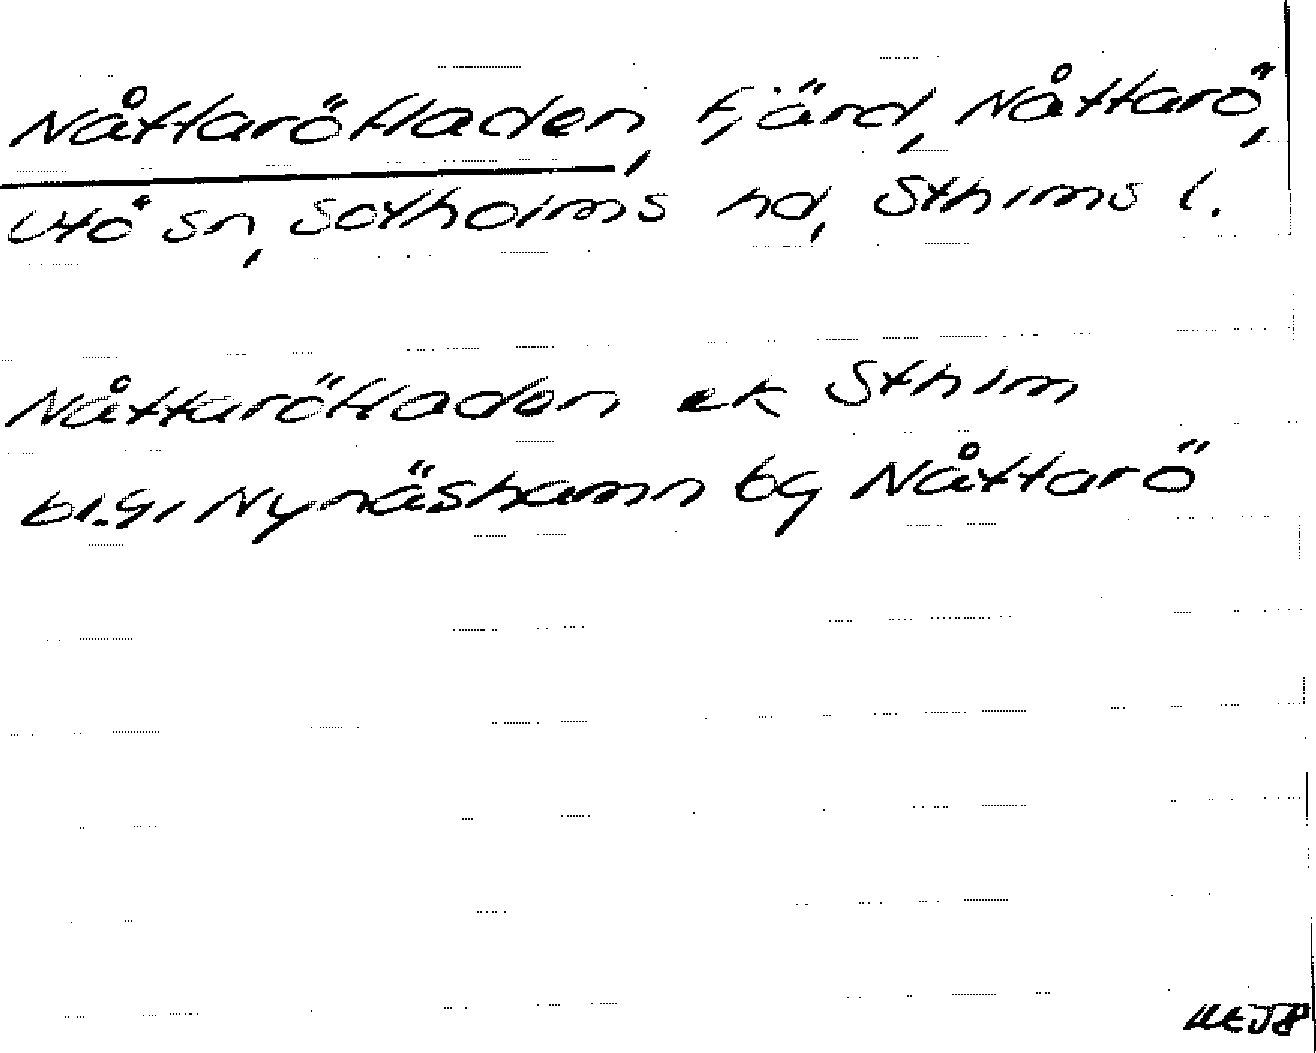 Nåttaröfladen, fjärd, Nåttarö,
Utö sn, Sotholms hd, Sthlms l.
Nåttaröfladen ek Sthlm
bl.9, Nynäshamn bg Nåttarö